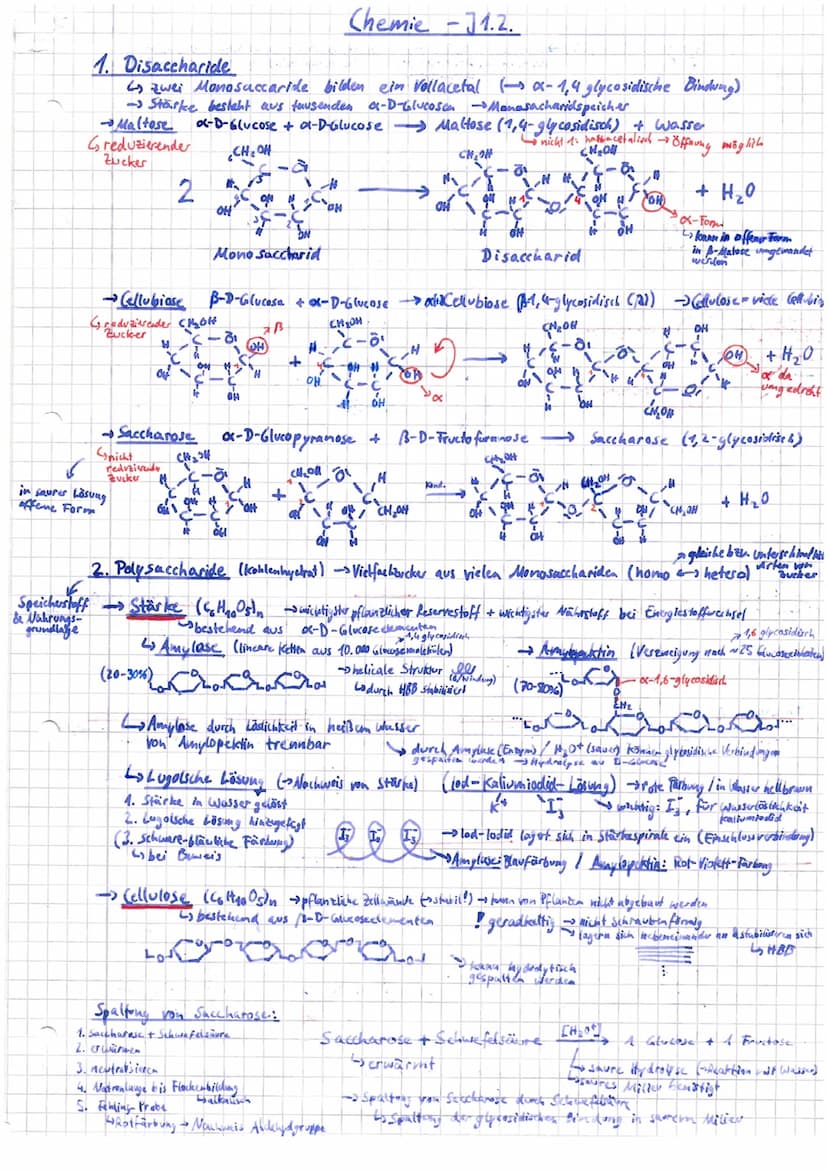 Chemie - J1.2.
1. Disaccharide
↳ zwei Monosaccaride bilden ein Vollacetal (→ α-1,4 glycosidische Bindung)
→ Stärke besteht aus tausenden α-D-Glucosen → Monosacharidspeicher
→ Maltose α-D-Glucose + α-D-Glucose → Maltose (1,4-glycosidisch) + Wasser
↳ reduzierender Zucker
↳ nicht 1: halbacetalisch → Öffnung möglich
2
+ H₂O
α-Form
↳ kann in offener Form
in β-Maltose umgewandelt
werden
Monosaccharid
Disaccharid
→ Cellubiose β-D-Glucose + α-D-Glucose → Cellubiose (β-1,4-glycosidisch → Cellulose = viele
↳ reduzierender Zucker
β
+
α
+ H₂O
α da
umgedreht
→ Saccharose α-D-Glucopyranose + β-D-Fructofuranose → Saccharose (1,2-glycosidisch)
↳ nicht
reduzierender
Zucker
in saurer Lösung
offene Form
+
Kond.
+ H₂O
2. Polysaccharide (Kohlenhydrat) → Vielfachzucker aus vielen Monosacchariden (homo ↔ hetero)
gleiche bzw. unterschiedliche
Arten von
Zucker
Speicherstoff
& Nahrungs-
grundlage
→ Stärke (C₆H₁₀O₅)ₙ → wichtigster pflanzlicher Reservestoff + wichtigster Nährstoff bei Energiestoffwechsel
↳ bestehend aus α-D-Glucoseelementen
1,4 glycosidisch
1,6 glycosidisch
↳ Amylose (lineare Ketten aus 10.000 Glucosemolekülen)
→ Amylopektin (Verzweigung nach ~25 Glucoseeinheiten)
(20-30%)
→ helicale Struktur
↳ durch HBB stabilisiert
(70-80%)
α-1,6-glycosidisch
CH₂
↳ Amylose durch Löslichkeit in heißem Wasser
von Amylopektin trennbar
↳ durch Amylase (Enzym) / H₃O⁺ (sauer) können glycosidische Verbindungen
gespalten werden → Hydrolyse zu D-Glucose
↳ Lugolsche Lösung (→ Nachweis von Stärke) (Iod-Kaliumiodid-Lösung) → rote Färbung / in Wasser hellbraun
K⁺ I₃⁻
→ wichtig: I₃⁻, für Wasserlöslichkeit
Kaliumiodid
1. Stärke in Wasser gelöst
2. Lugolsche Lösung hinzugefügt
(3. schwarz-bläuliche Färbung)
↳ bei Beweis
I₃⁻ I₃⁻ I₃⁻
→ Iod-Iodid lagert sich in Stärkespirale ein (Einschlussverbindung)
→ Amylose: Blaufärbung / Amylopektin: Rot-Violett-Färbung
→ Cellulose (C₆H₁₀O₅)ₙ → pflanzliche Zellwände (→ stabil!) → kann von Pflanzen nicht abgebaut werden
↳ bestehend aus β-D-Glucoseelementen
! geradkettig → nicht schraubenförmig
→ lagern sich nebeneinander an & stabilisieren sich
↳ HBB
↳ kann hydrolytisch
gespalten werden
Spaltung von Saccharose:
1. Saccharose + Schwefelsäure
2. erwärmen
3. neutralisieren
4. Natronlauge bis Flockenbildung
↳ alkalisch
5. Fehling-Probe
↳ Rotfärbung → Nachweis Aldehydgruppe
Saccharose + Schwefelsäure [H₃O⁺] → 1 Glucose + 1 Fructose
↳ erwärmt
↳ saure Hydrolyse (→ Reaktion mit Wasser)
↳ saures Milieu benötigt
→ Spaltung von Saccharose durch Schwefelsäure
↳ Spaltung der glycosidischen Bindung in saurem Milieu